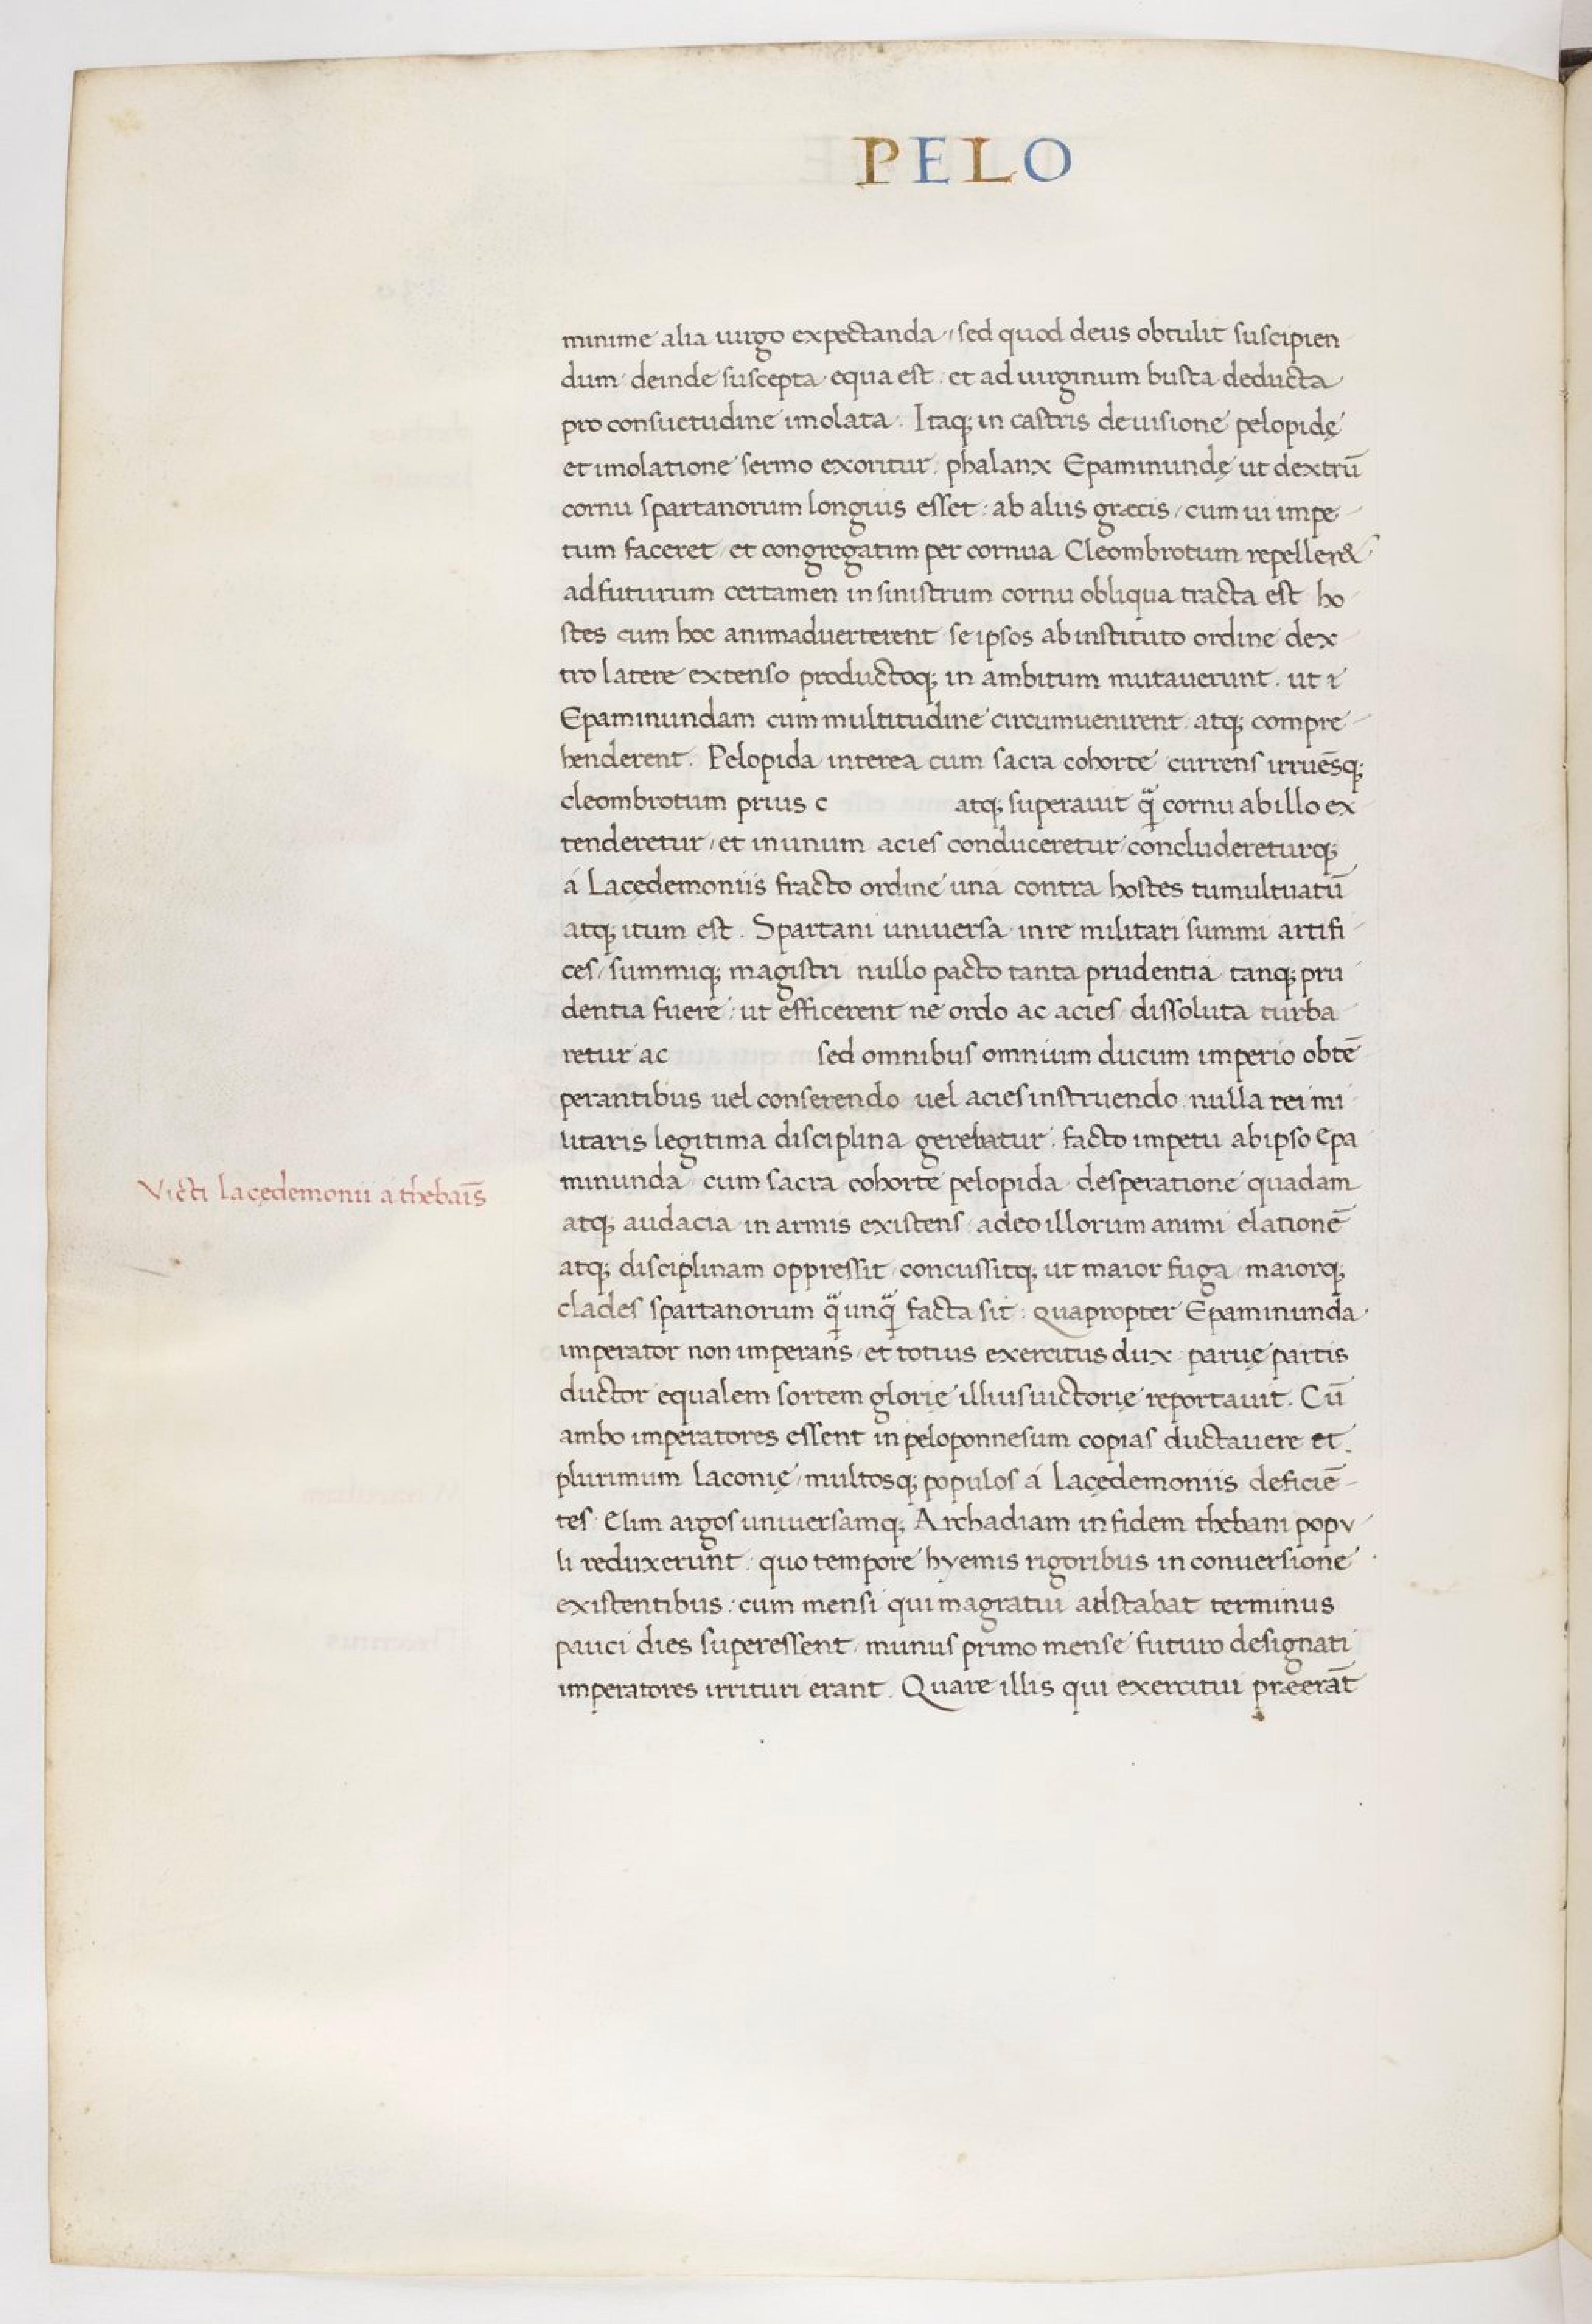 PELO
minime alia uirgo expectanda, sed quod deus obtulit suscipien
dum deinde suscepta equa est. et ad uirginum busta deducta
pro consuetudine imolata. Itaq; in castris de uisione pelopidę
et imolatione sermo exoritur. phalanx Epaminundę ut dextrū
cornu spartanorum longius esset: ab aliis græcis / cum ui impe
tum faceret / et congregatim per cornua Cleombrotum repeller&
ad futurum certamen in sinistrum cornu obliqua tracta est ho
stes cum hoc animaduerterent se ipsos ab instituto ordine dex
tro latere extenso productoq; in ambitum mutauerunt. ut i
Epaminundam cum multitudine circumuenirent. atq; compre
henderent. Pelopida interea cum sacra cohorte currens irruēsq;
cleombrotum prius c atq; superauit q̈ cornu ab illo ex
tenderetur / et in unum acies conduceretur / concludereturq;
á Lacędemoniis fracto ordine una contra hostes tumultuatū
atq; itum est. Spartani uniuersa in re militari summi artifi
ces / summiq; magistri nullo pacto tanta prudentia tanq; pru
dentia fuere: ut efficerent ne ordo ac acies dissoluta turba
retur ac sed omnibus omnium ducum imperio obtē
perantibus uel conserendo uel acies instruendo nulla rei mi
litaris legitima disciplina gerebatur. facto impetu ab ipso Epa
minunda cum sacra cohorte pelopida desperatione quadam
Victi lacędemonii a thebaīs
atq; audacia in armis existens adeo illorum animi elationē
atq; disciplinam oppressit / concussitq; ut maior fuga / maiorq;
clades spartanorum q̈ unq̈ facta sit: quapropter Epaminunda
imperator non imperans / et totius exercitus dux paruę partis
ductor equalem sortem glorię illius uictorię reportauit. Cū
ambo imperatores essent in peloponnesum copias ductauere et
plurimum laconię / multosq; populos á Lacędemoniis deficiē
tes. Elim argos uniuersamq; Archadiam in fidem thebani popu
li reduxerunt: quo tempore hyemis rigoribus in conuersione
existentibus: cum mensi qui magratui adstabat terminus
pauci dies superessent / munus primo mense futuro designati
imperatores irrituri erant. Quare illis qui exercitui præerāt